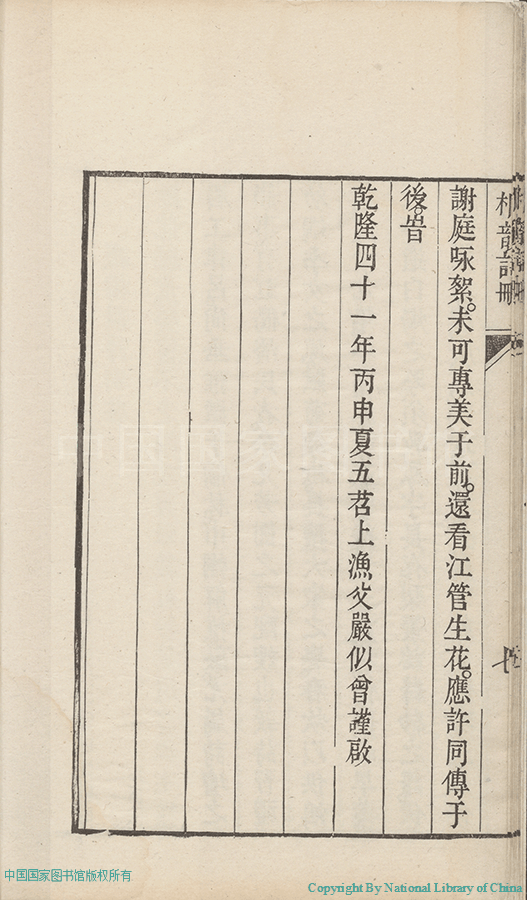 謝庭咏絮。未可專美于前。還看江管生花。應許同傳于
後。旹
乾隆四十一年丙申夏五苕上漁父嚴似曾謹啟
中国国家图书馆
中国国家图书馆版权所有
Copyright By National Library of China